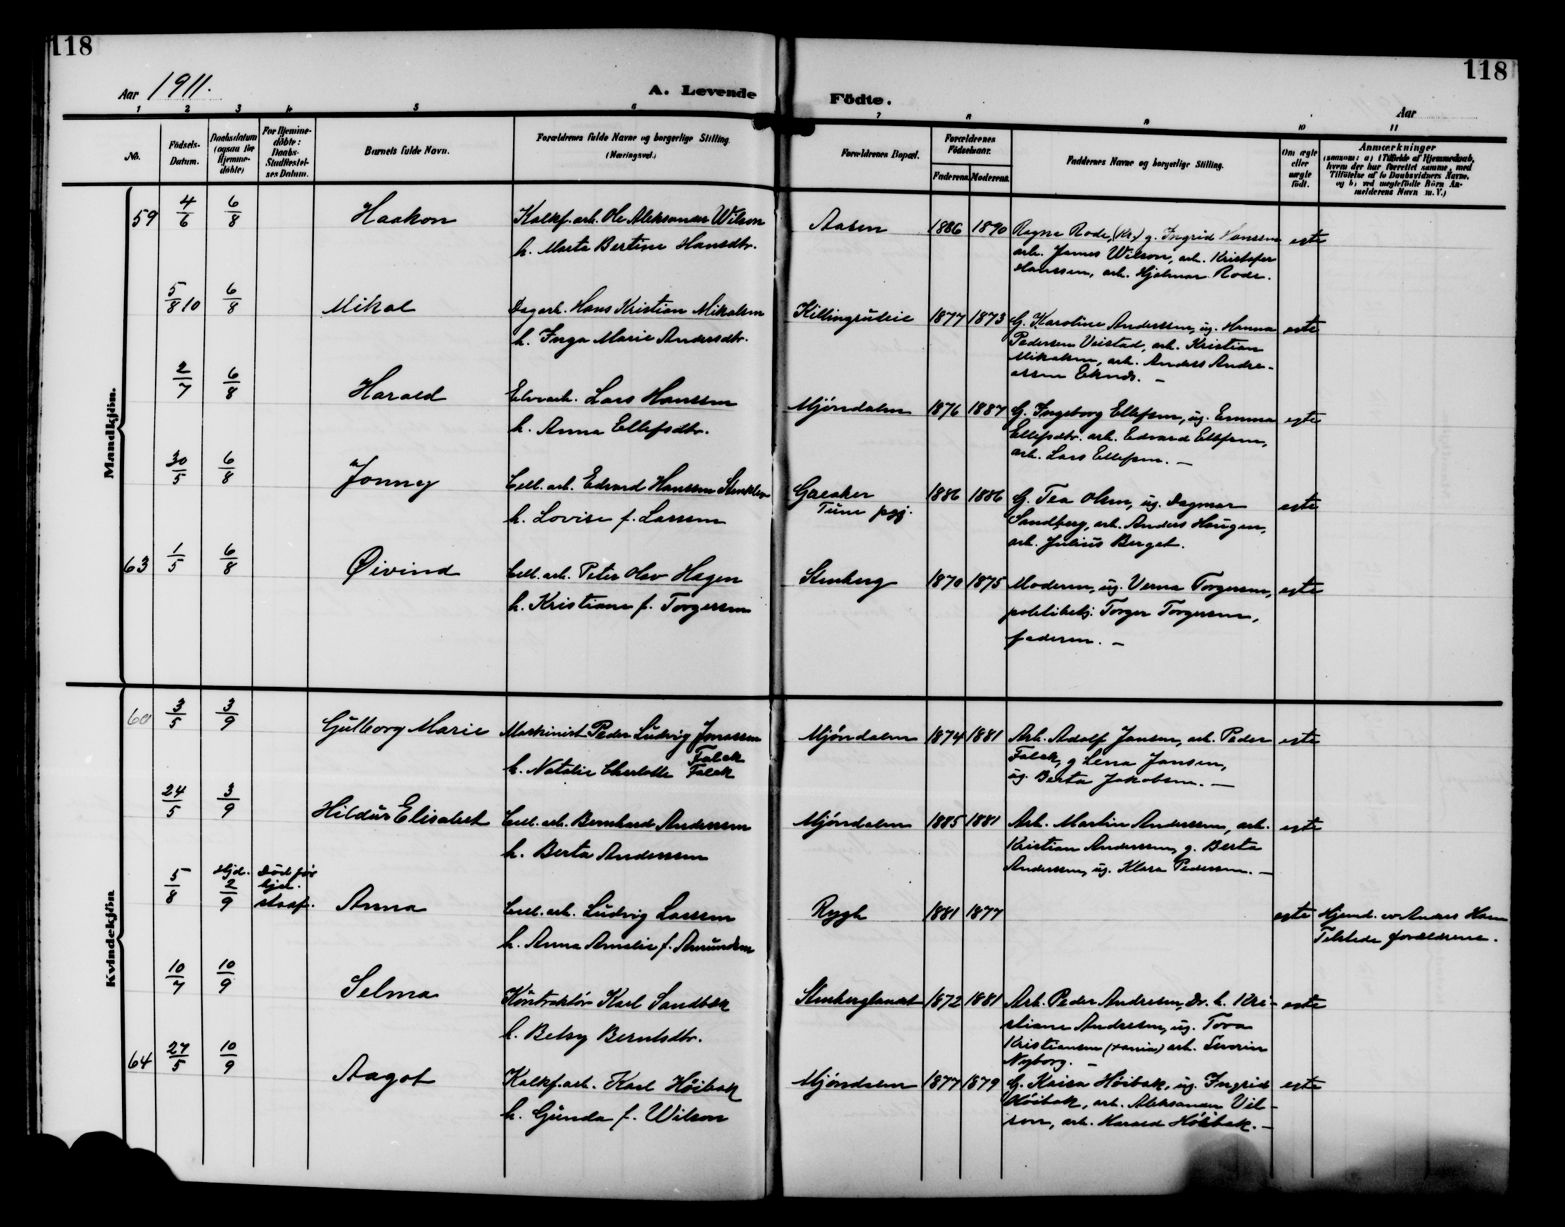 118
118
Aar 1911.
A. Levende Fødte.
Aar
1 2 3 4 5 6 7 8 9 10 11
No.
Fødsels-Datum.
Daabsdatum (ogsaa for Hjemme-døbte)
For Hjemme-døbte: Daabs-Stadfæstel-ses Datum.
Barnets fulde Navn.
Forældrenes fulde Navne og borgerlige Stilling. (Næringsvei.)
Forældrenes Bopæl.
Forældrenes Fødselsaar.
Faderens. Moderens.
Faddernes Navne og borgerlige Stilling.
Om ægte eller uægte født.
Anmærkninger
(saasom: a) i Tilfælde af Hjemmedaab, hvem der har forrettet samme, med Tilføielse af to Daabsvidners Navne, og b) ved uægtefødte Børn An-melderens Navn m. V.)
Mandkjøn.
59 4/6 6/8 Haakon
Kalkf.arb. Ole Aleksander Wilson
h. Marta Bertine Hansdtr.
Aasen 1886 1890
Ragna Rode, (Kr.) g. Ingrid Hanssen
arb. James Wilson, arb. Kristofer
Hanssen, arb. Hjalmar Rode.
egte
5/8 10 6/8 Mikal
Dagarb. Hans Kristian Mikalsen
h. Inga Marie Andersdtr.
Killingrudeie 1877 1873
G. Karoline Anderssen, ug. Hanna
Pedersen Veistad, arb. Kristian
Mikalsen, arb. Anders Andre-
assen Eknes. –
egte
2/7 6/8 Harald
Elvearb. Lars Hanssen
h. Anna Ellefsdtr.
Mjøndalen 1876 1887
G. Ingeborg Ellefsen, ug. Emma
Ellefsdtr. arb. Edvard Ellefsen,
arb. Lars Ellefsen. –
egte
30/5 6/8 Jonney
Cell. arb. Edvard Hanssen Stenklev
h. Lovise f. Larssen
Greaker
Tune pgj.
1886 1886
G. Tea Olsen, ug. Dagmar
Sandberg, arb. Anders Haugen,
arb. Julius Berget.
egte
63 1/5 6/8 Øivind
Cell. arb. Peter Olav Hagen
h. Kristiane f. Torgersen
Stenberg 1870 1875
Moderen, ug. Verna Torgersen,
politibetj. Torger Torgersen,
faderen. –
egte
Kvindekjøn
60 3/5 3/9 Gulborg Marie
Maskinist Peder Ludvig Jonassen
Falck
h. Natalie Charlotte Falck
Mjøndalen 1874 1881
Arb. Adolf Jansen, arb. Peder
Falck, g Lena Jansen,
ug. Berta Jakobsen. –
egte
24/5 3/9 Hildur Elisabet
Cell. arb. Bernhard Anderssen
h. Berta Anderssen
Mjøndalen 1885 1881
Arb. Martin Anderssen, arb.
Kristian Anderssen, g. Berta
Anderssen, ug. Klara Pedersen. –
egte
5/8 Hjd. 2/9 Død før
stadf. Anna
Cell. arb. Ludvig Larssen
h. Anna Amalie f. Amundsen
Rygh 1881 1877
egte
Hjemd. av Anders Hans
Tilstede forældrene.
10/7 10/9 Selma
Kontraktør Karl Sandbæk
h. Betsy Berntsdtr.
Stenberglandet 1872 1881
Arb. Peder Andresen, Dr. h. Kri-
stiane Andresen, ug. Tora
Kristiansen arb. Severin
Nyborg. –
egte
64 27/5 10/9 Aagot
Kalkf.arb. Karl Høibak
h. Gunda f. Wilson
Mjøndalen 1877 1879
G. Kaisa Høibak, ug. Ingrid
Høibak, arb. Aleksander Vil-
son, arb. Harald Høibak. –
egte